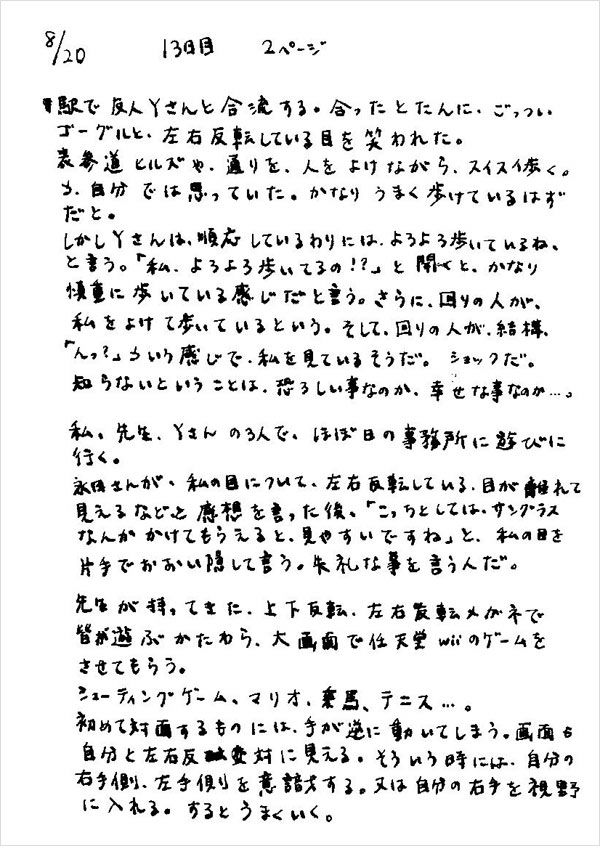 8/20 13日目 2ページ
駅で友人Yさんと合流する。合ったとたんに、ごっつい
ゴーグルと、左右反転している目を笑われた。
表参道ヒルズや、通りを、人をよけながら、スイスイ歩く。
と、自分では思っていた。かなりうまく歩けているはず
だと。
しかしYさんは、順応しているわりには、よろよろ歩いているね、
と言う。「私、よろよろ歩いてるの!?」と聞くと、かなり
慎重に歩いている感じだと言う。さらに、回りの人が、
私をよけて歩いているという。そして、回りの人が、結構、
「んっ?」という感じで、私を見ているそうだ。ショックだ。
知らないということは、恐ろしい事なのか、幸せな事なのか…。
私、先生、Yさんの3人で、ほぼ日の事務所に遊びに
行く。
永田さんが、私の目について、左右反転している、目が離れて
見えるなどと感想を言った後、「こっちとしては、サングラス
なんかかけてもらえると、見やすいですね」と、私の目を
片手でおおい隠して言う。失礼な事を言う人だ。
先生が持ってきた、上下反転、左右反転メガネで
皆が遊ぶかたわら、大画面で任天堂wiiのゲームを
させてもらう。
シューティングゲーム、マリオ、乗馬、テニス…。
初めて対面するものには、手が逆に動いてしまう。画面も
自分と左右反対に見える。そういう時には、自分の
右手側、左手側を意識する。又は自分の右手を視野
に入れる。するとうまくいく。